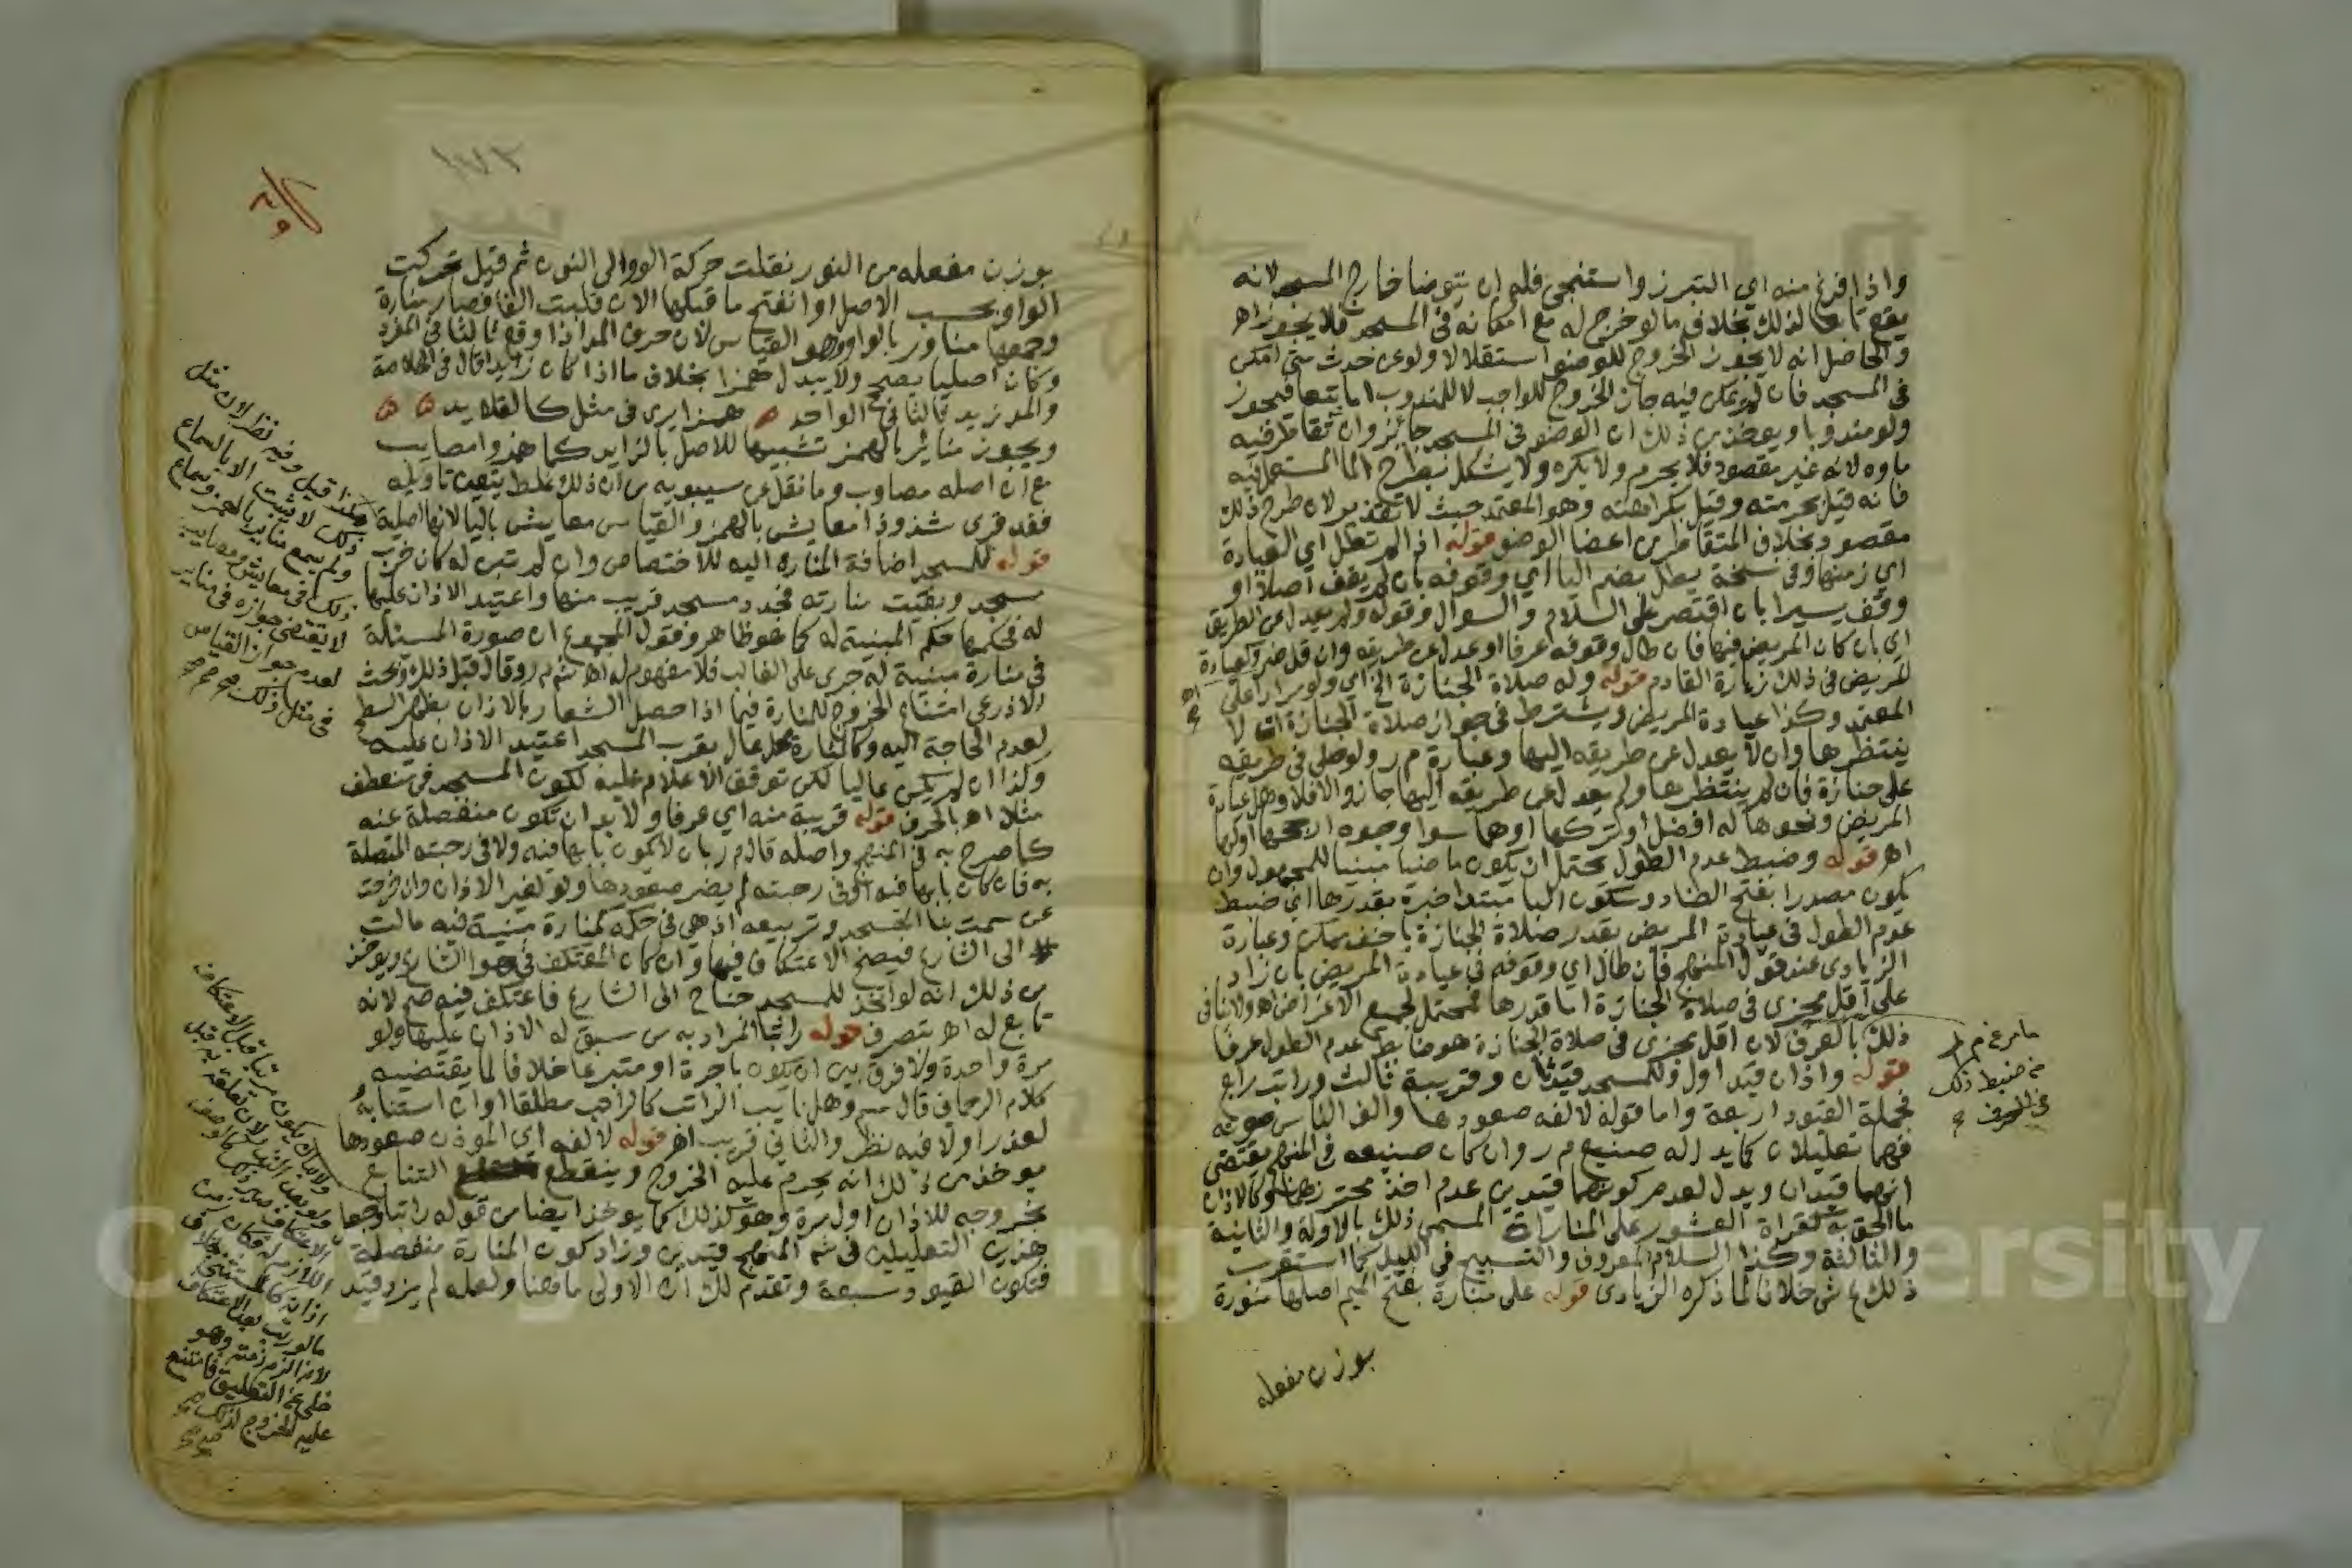 واذا فرغ منه اي التبرز واستنجى فله ان يتوضا خارج المسجد لانه
يقع تابعا لذلك بخلاف ما لو خرج له مع امكانه في المسجد فلا يجوز اه
والحاصل انه لا يجوز الخروج للوضوء استقلالا ولو عن حدث متى امكن
في المسجد فان لم يمكن فيه جاز الخروج للواجب لا للمندوب اما تبعا فيجوز
ولو مندوبا ويوخذ من ذلك ان الوضوء في المسجد جائز وان تقاطر فيه
ماوه لانه غير مقصود فلا يحرم ولا يكره ولا يشكل بطرح الما المستعمل فيه
فانه قيل بحرمته وقيل بكراهته وهو المعتمد حيث لا تقذير لان طرح ذلك
مقصود بخلاف المتقاطر من اعضا الوضو قوله اذا لم تطل اي العيادة
اي زمنها وفي نسخة يطل بضم اليا اي وقوفه بان لم يقف اصلا او
وقف يسيرا بان اقتصر على السلام والسوال وقوله ولم يعدل عن الطريق
اي بان كان المريض فيها فان طال وقوفه عرفا او عدل عن طريقه وان قل ضر وكعيادة
المريض في ذلك زيارة القادم قوله وله صلاة الجنازة الخ اي ولو مرارا على
المعتمد وكذا عيادة المريض ويشترط في جواز صلاة الجنازة ان لا
ينتظرها وان لا يعدل عن طريقه اليها وعبارة م ر ولو صلى في طريقه
على جنازة فان لم ينتظرها ولم يعدل عن طريقه اليها جاز والا فلا وهل عيادة
المريض ونحوها له افضل او تركها او هما سوا وجوه ارجحها اولها
اه قوله وضبط عدم الطول يحتمل ان يكون ماضيا مبنيا للمجهول وان
يكون مصدرا بفتح الضاد وسكون البا مبتدا خبره بقدرها اي ضبط
عدم الطول في عيادة المريض بقدر صلاة الجنازة باخف ممكن وعبارة
الزيادي عند قول المنهج فان طال اي وقوفه في عيادة المريض بان زاد
على اقل مجزي في صلاة الجنازة اما قدرها فمحتمل لجميع الاغراض اه ولا ينافي
ذلك بالعرف لان اقل مجزي في صلاة الجنازة هو ضابط عدم الطول عرفا
قوله واذان قيد اول وللمسجد قيد ثان وقريبة ثالث وراتب رابع
فجملة القيود اربعة واما قوله لالفه صعودها والف الناس صوته
فهما تعليلان كما يدل له صنيع م ر وان كان صنيعه في المنهج يقتضي
انهما قيدان ويدل لعدم كونهما قيدين عدم اخذ محترزهما وكالاذان
ما الحق به كقراة العشور على المنارات المسمى ذلك بالاولة والثانية
والثالثة وكذا السلام المعروف والتسبيح في الليل كما استقرب
ذلك ع ش خلافا لما ذكره الزيادي قوله على منارة بفتح الميم اصلها منورة
بوزن مفعله
بوزن مفعله من النور نقلت حركة الواو الى النون ثم قيل تحركت
الواو بحسب الاصل وانفتح ما قبلها الان قلبت الفا فصار منارة
وجمعها مناور بالواو وهو القياس لان حرف المد اذا وقع ثالثا في المفرد
وكان اصليا يصح ولا يبدل همزا بخلاف ما اذا كان زايدا قال في الخلاصة
والمد زيد ثالثا في الواحد ه همزا يرى في مثل كالقلايد ه ه
ويجوز منائر بالهمز تشبيها للاصل بالزايد كما همزوا مصايب
مع ان اصله مصاوب وما نقل عن سيبويه من ان ذلك غلط يتعين تاويله
فقد قرى شذوذا معايش بالهمز والقياس معايش باليا لانها اصلية
قوله للمسجد اضافة المنارة اليه للاختصاص وان لم تبن له كان خرب
مسجد وبقيت منارته فجدد مسجد قريب منها واعتيد الاذان عليها
له فحكمها حكم المبنية له كما هو ظاهر وقول المجموع ان صورة المسئلة
في منارة مبنية له جرى على الغالب فلا مفهوم له اه شم م ر وقال قبل ذلك وبحث
الاذرعي امتناع الخروج للمنارة فيما اذا حصل الشعار بالاذان بظهر السطح
لعدم الحاجة اليه وكالمنارة محل عال بقرب المسجد اعتيد الاذان عليه
وكذا ان لم يكن عاليا لكن توقف الاعلام عليه لكون المسجد في منعطف
مثلا اه بالحرف قوله قريبة منه اي عرفا ولا بد ان تكون منفصلة عنه
كما صرح به في المنهج واصله قال م ر بان لا يكون بابها فيه ولا في رحبته المتصلة
به فان كان بابها فيه او في رحبته لم يضر صعودها ولو لغير الاذان وان خرجت
عن سمت بنا المسجد وتربيعه اذ هي في حكمه كمنارة مبنية فيه مالت
الى الشارع فيصح الاعتكاف فيها وان كان المعتكف في هوا الشارع ويوخذ
من ذلك انه لو اتخذ للمسجد جناح الى الشارع فاعتكف فيه صح لانه
تابع له اه بتصرف قوله راتبا المراد به من سبق له الاذان عليها ولو
مرة واحدة ولا فرق بين ان يكون باجرة او متبرعا خلافا لما يقتضيه
كلام الرحماني قال سم وهل نايب الراتب كالراتب مطلقا او ان استنابه
لعذر اولا فيه نظر والثاني قريب اه قوله لالفه اي الموذن صعودها
يوخذ من ذلك انه يحرم عليه الخروج وينقطع التتابع
بخروجه للاذان اول مرة وهو كذلك كما يوخذ ايضا من قوله راتبا وجعل
هذين التعليلين في شم المنهج قيدين وزاد كون المنارة منفصلة
فتكون القيود سبعة وتقدم لك ان الاولى ما هنا ولعله لم يزد قيد
هكذا قيل وفيه نظر لان مثل
ذلك لا يثبت الا بالسماع
ولم يسمع مناير بالهمز وسماع
ذلك في معايش ومصايب
لا يقتضي جوازه في مناير
لعدم جواز القياس
في مثل ذلك صح